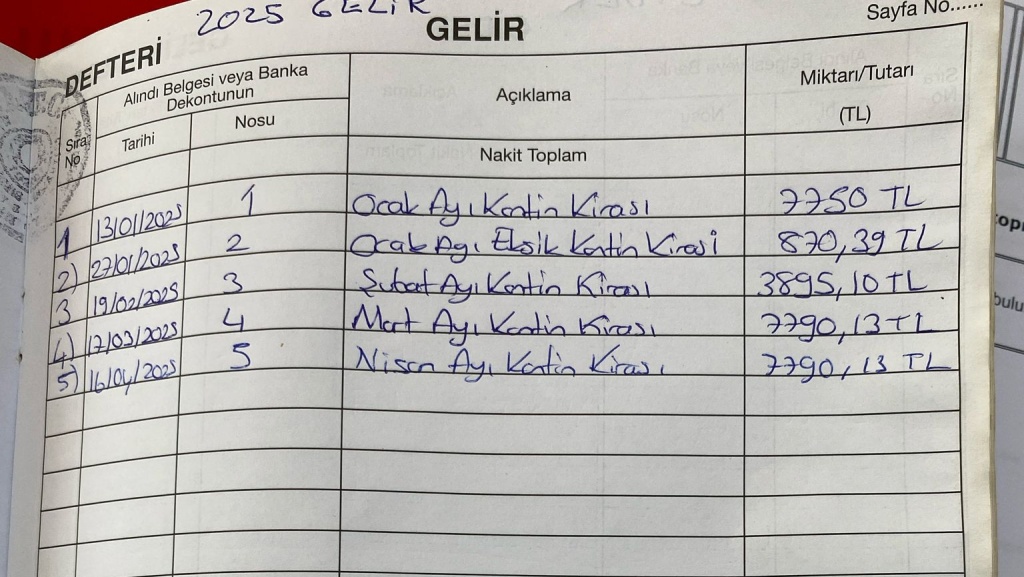 2025 GELİR
DEFTERİ
GELİR
Sayfa No......
Sıra No
Alındı Belgesi veya Banka Dekontunun
Tarihi
Nosu
Açıklama
Miktarı/Tutarı
(TL)
Nakit Toplam
1 13/01/2025 1 Ocak Ayı Kantin Kirası 7750 TL
2) 27/01/2025 2 Ocak Ayı Eksik Kantin Kirası 870,39 TL
3 19/02/2025 3 Şubat Ayı Kantin Kirası 3895,10 TL
4) 17/03/2025 4 Mart Ayı Kantin Kirası 7790,13 TL
5) 16/04/2025 5 Nisan Ayı Kantin Kirası 7790,13 TL